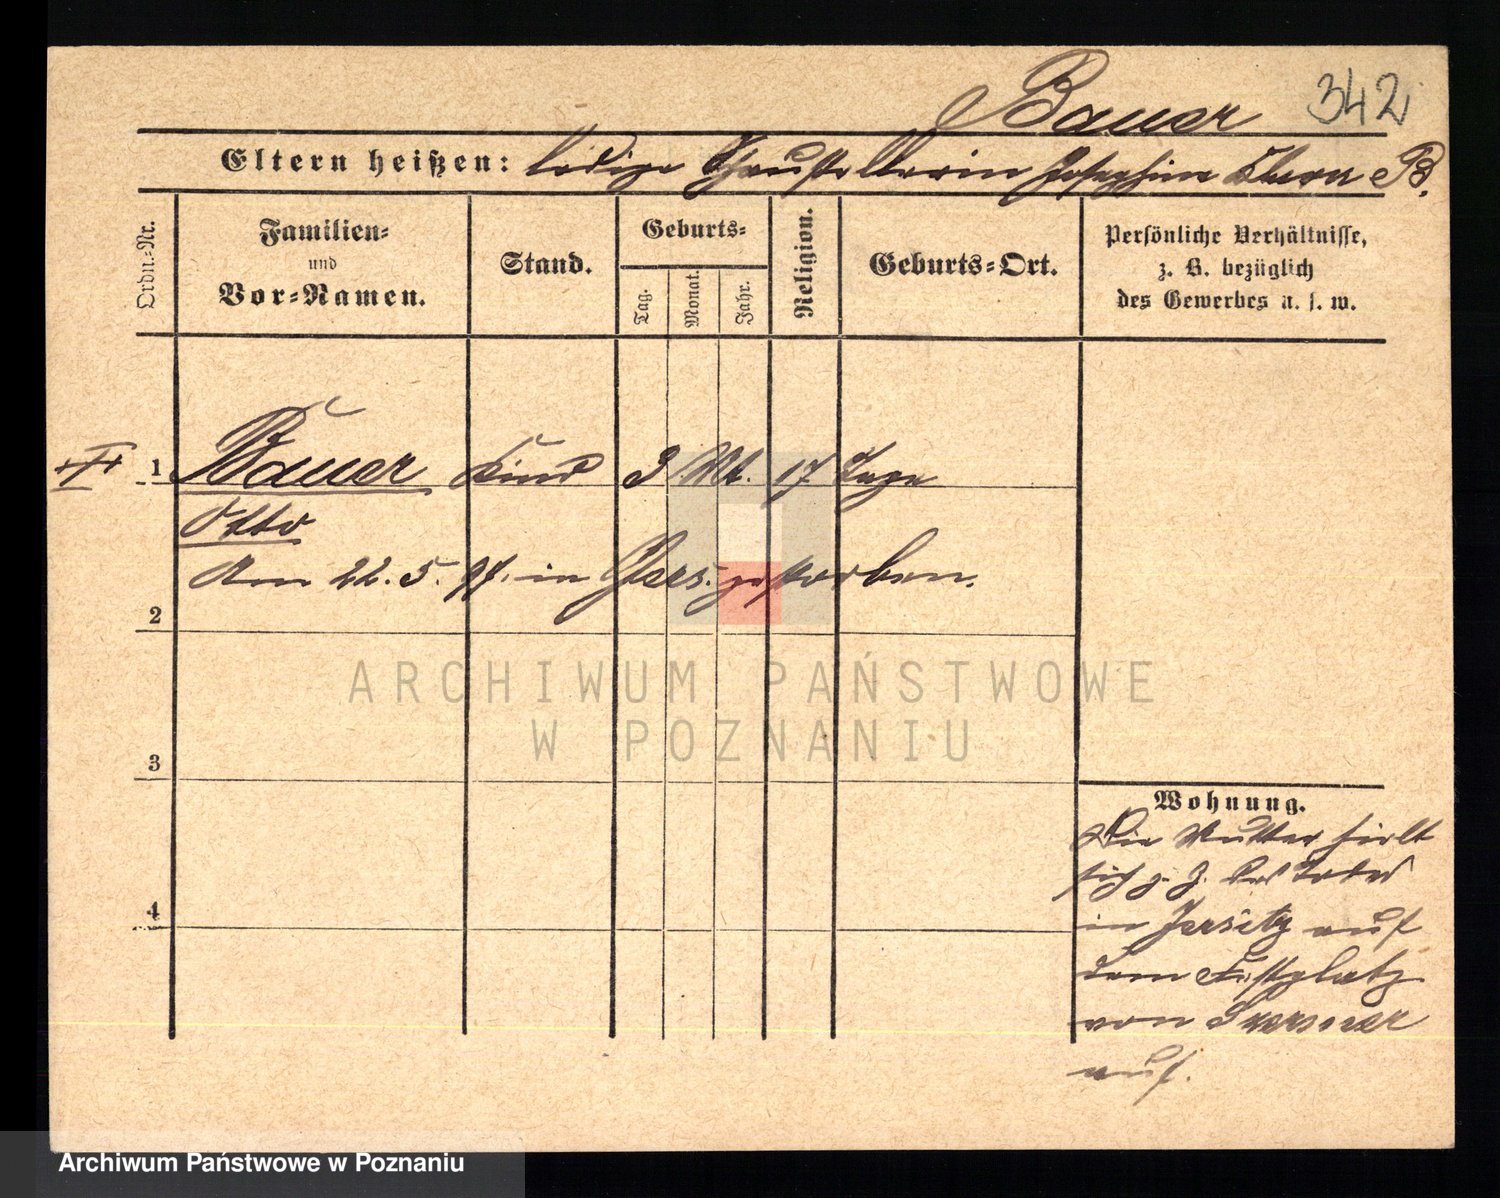 Bauer 342
Eltern heißen: ledige Schaustellerin Josephine B.
Ordn.-Nr.
Familien-
und
Vor-Namen.
Stand.
Geburts-
Tag.
Monat.
Jahr.
Religion.
Geburts-Ort.
Persönliche Verhältnisse,
z. B. bezüglich
des Gewerbes u. s. w.
1 Bauer Kind 3 Mt. 17 Tage
Otto
Am 22. 5. 97. in Jers. gestorben.
2
3
4
Wohnung.
Die Mutter hielt
sich z. Z. des Todes
in Jersitz auf
dem Festplatz
von
auf.
ARCHIWUM PAŃSTWOWE
W POZNANIU
Archiwum Państwowe w Poznaniu